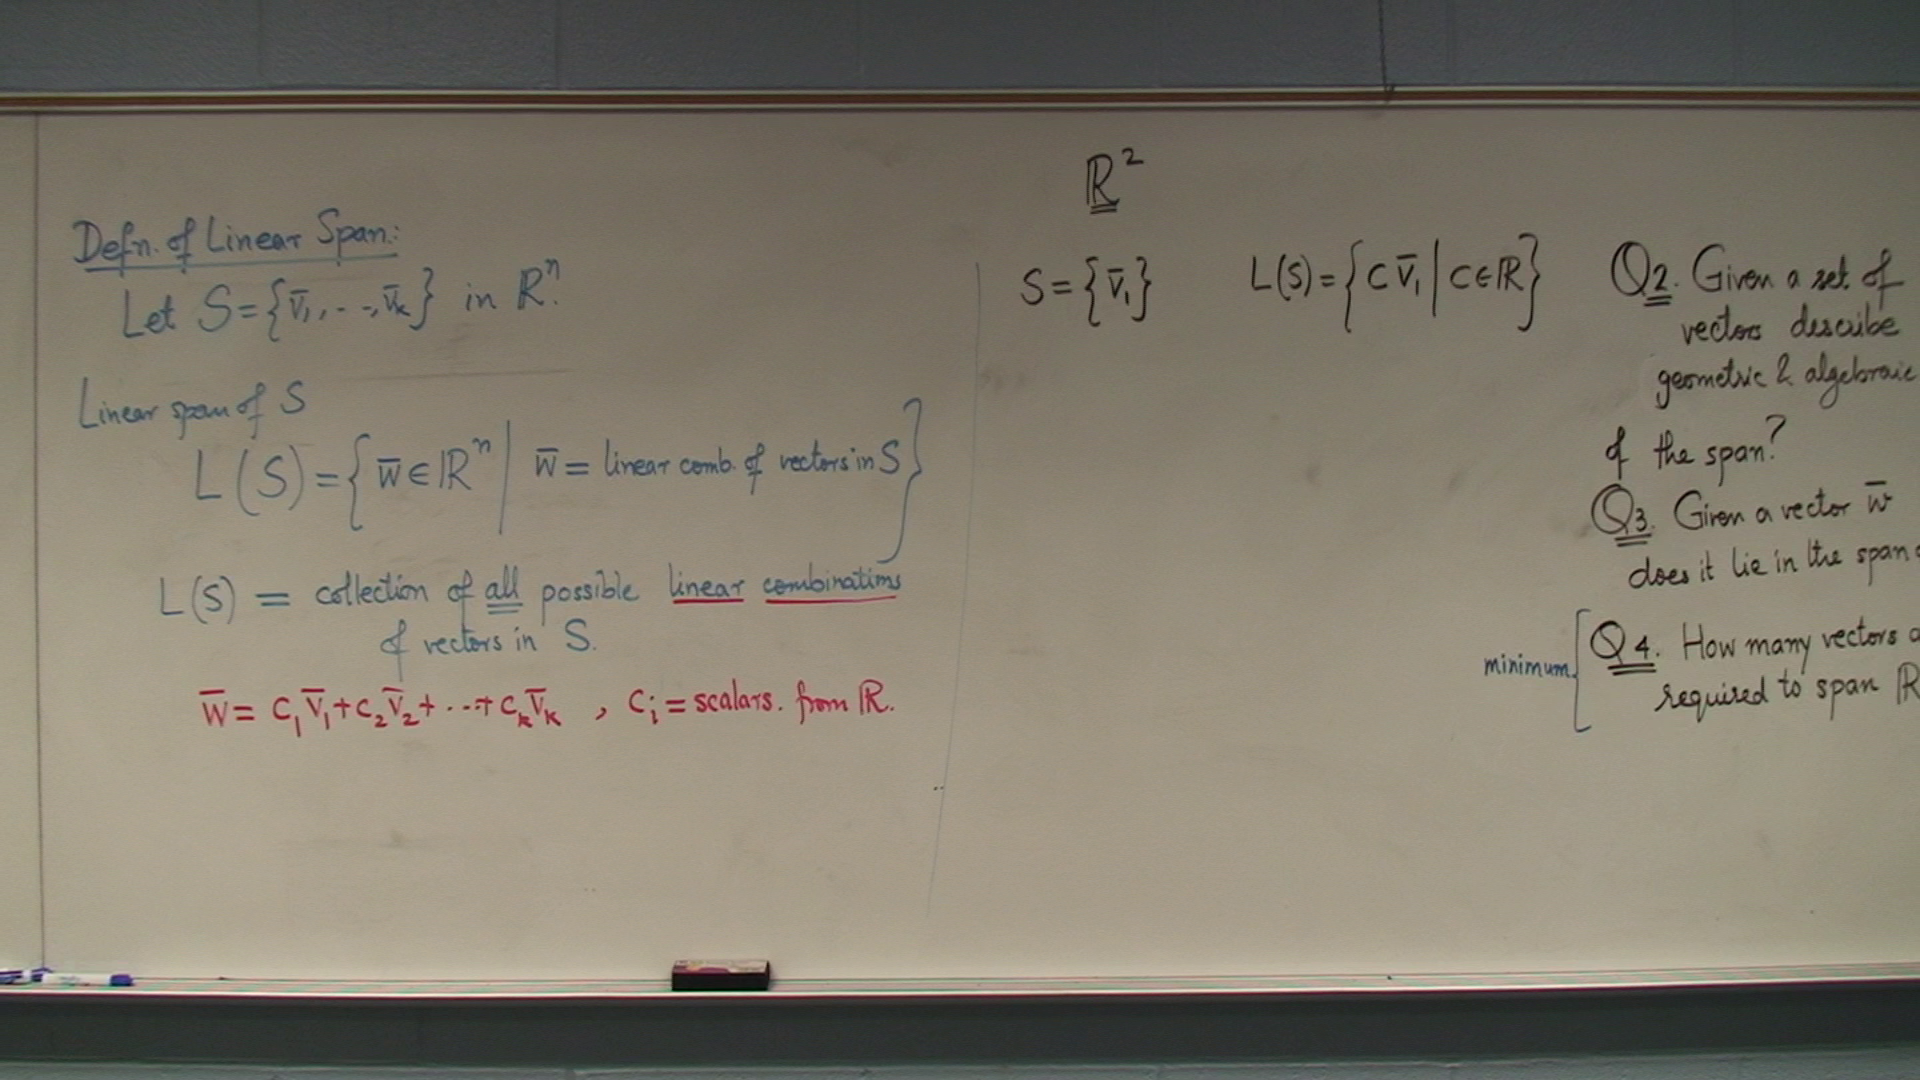 Defn. of Linear Span:
Let S = {v̄₁, . . ., v̄ₖ} in ℝⁿ.
Linear span of S
L(S) = {w̄ ∈ ℝⁿ | w̄ = linear comb. of vectors in S}
L(S) = collection of all possible linear combinations
of vectors in S.
w̄ = c₁v̄₁ + c₂v̄₂ + ... + cₖv̄ₖ , cᵢ = scalars. from ℝ.
ℝ²
S = {v̄₁} L(S) = {c v̄₁ | c ∈ ℝ}
Q2. Given a set of
vectors describe
geometric & algebraic
of the span?
Q3. Given a vector w̄
does it lie in the span
minimum
Q4. How many vectors
required to span ℝ